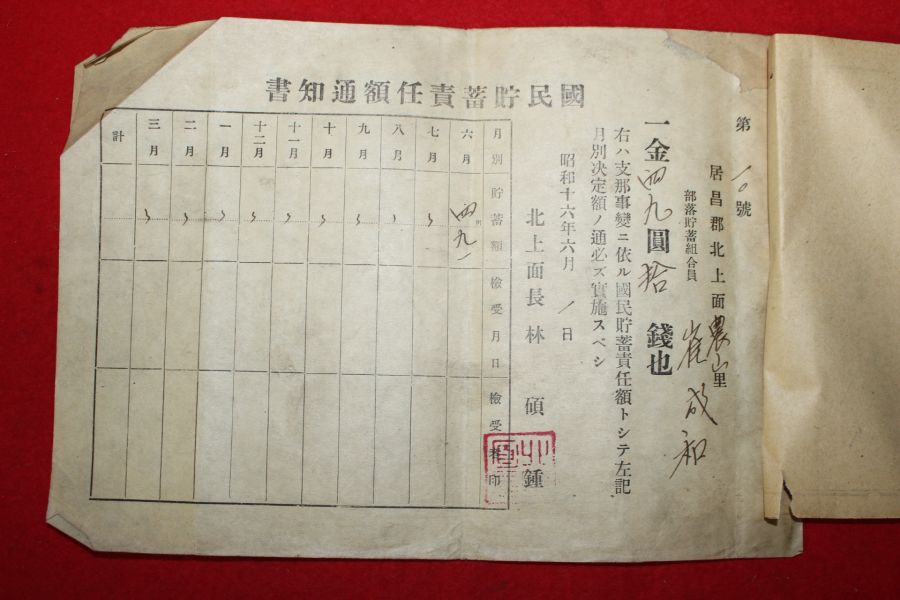 國民貯蓄責任額通知書
第一〇號
居昌郡北上面農山里
部落貯蓄組合員
崔成和
一金四九圓拾錢也
右ハ支那事變ニ依ル國民貯蓄責任額トシテ左記
月別決定額ノ通必ズ實施スベシ
昭和十六年六月 日
北上面長 林碩鍾
月別 貯蓄額 檢受月日 檢受者印
六月 四九一
七月
八月
九月
十月
十一月
十二月
一月
二月
三月
計